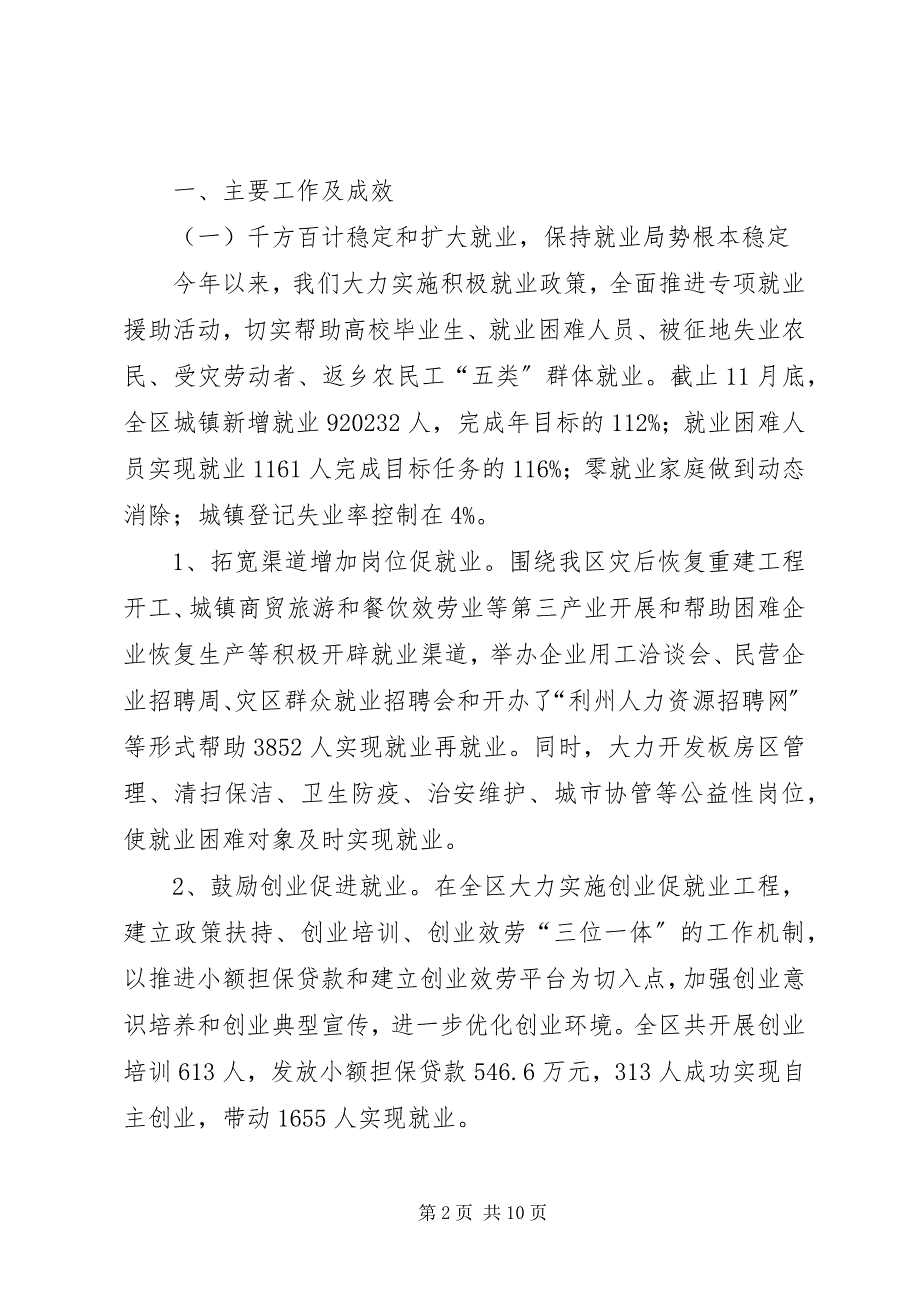 一、主要工作及成效
（一）千方百计稳定和扩大就业，保持就业局势根本稳定
今年以来，我们大力实施积极就业政策，全面推进专项就业
援助活动，切实帮助高校毕业生、就业困难人员、被征地失业农
民、受灾劳动者、返乡农民工“五类〞群体就业。截止 11 月底，
全区城镇新增就业 920232 人，完成年目标的 112%；就业困难人
员实现就业 1161 人完成目标任务的 116%；零就业家庭做到动态
消除；城镇登记失业率控制在 4%。
1、拓宽渠道增加岗位促就业。围绕我区灾后恢复重建工程
开工、城镇商贸旅游和餐饮效劳业等第三产业开展和帮助困难企
业恢复生产等积极开辟就业渠道，举办企业用工洽谈会、民营企
业招聘周、灾区群众就业招聘会和开办了“利州人力资源招聘网〞
等形式帮助 3852 人实现就业再就业。同时，大力开发板房区管
理、清扫保洁、卫生防疫、治安维护、城市协管等公益性岗位，
使就业困难对象及时实现就业。
2、鼓励创业促进就业。在全区大力实施创业促就业工程，
建立政策扶持、创业培训、创业效劳“三位一体〞的工作机制，
以推进小额担保贷款和建立创业效劳平台为切入点，加强创业意
识培养和创业典型宣传，进一步优化创业环境。全区共开展创业
培训 613 人，发放小额担保贷款 546.6 万元，313 人成功实现自
主创业，带动 1655 人实现就业。
第 2 页 共 10 页